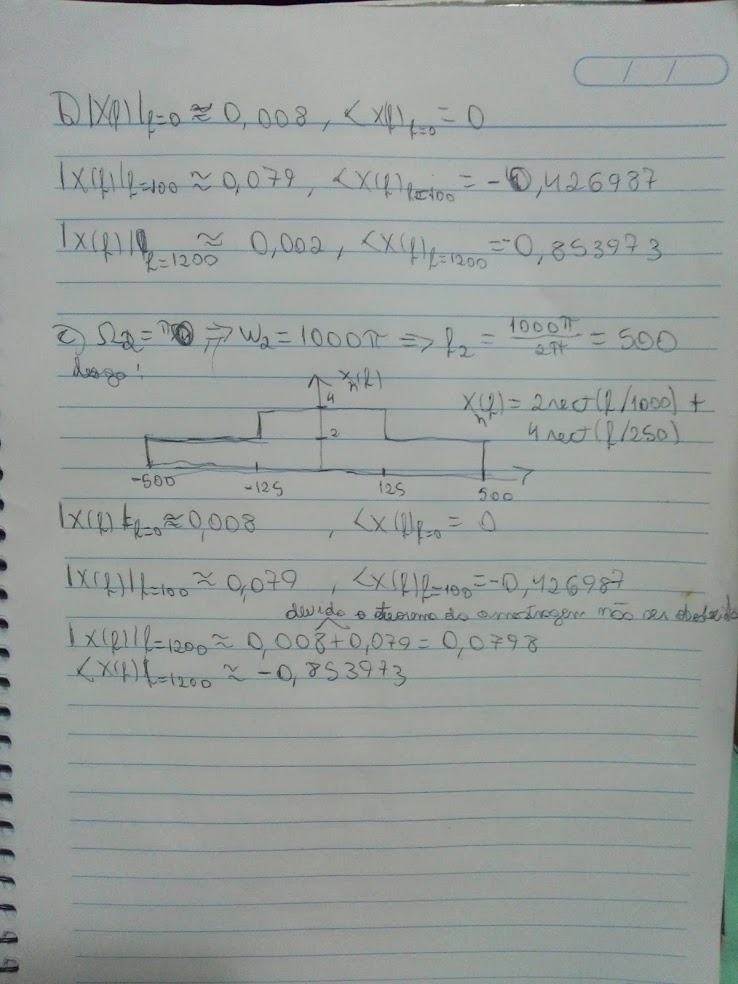 b) |X(f)|f=0 ≈ 0,008 , <X(f)f=0 = 0
|X(f)|f=100 ≈ 0,079 , <X(f)f=100 = -0,426987
|X(f)|f=1200 ≈ 0,002 , <X(f)f=1200 = -0,853973
c) Ω2 = π ⇒ W2 = 1000π ⇒ f2 = 1000π/2π = 500
logo:
Xn(f)
4
2
-500 -125 125 500
Xn(f) = 2rect(f/1000) +
4rect(f/250)
|X(f)|f=0 ≈ 0,008 , <X(f)f=0 = 0
|X(f)|f=100 ≈ 0,079 , <X(f)f=100 = -0,426987
devido o teorema da amostragem não ser obedecido
|X(f)|f=1200 ≈ 0,008+0,079 = 0,0798
<X(f)f=1200 ≈ -0,853973